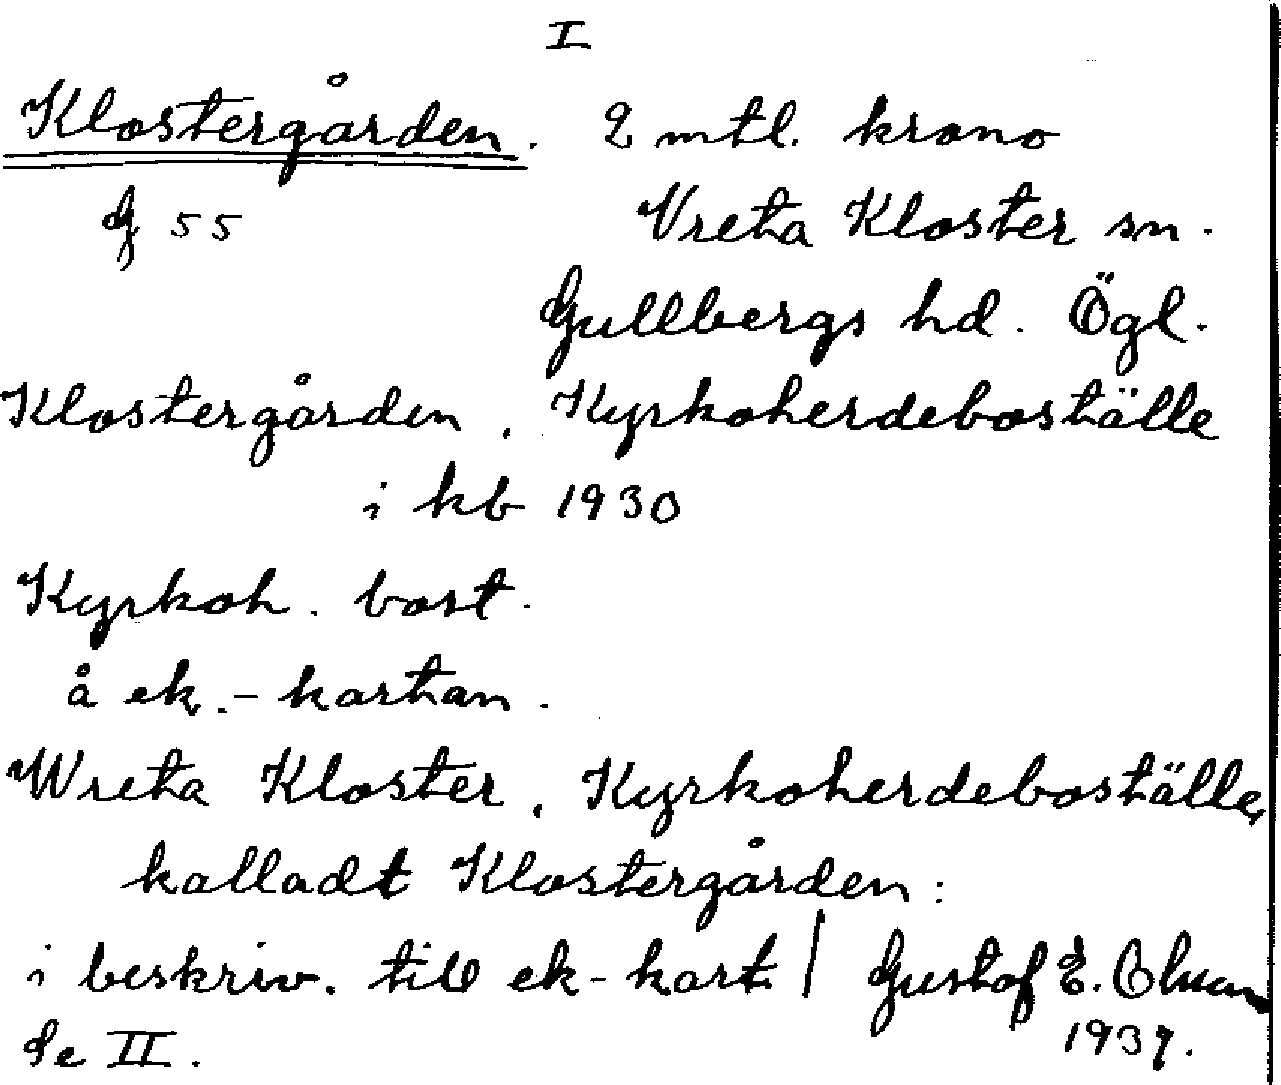 I
Klostergården. 2 mtl. krono
G 55 Vreta Kloster sn.
Gullbergs hd. Ögl.
Klostergården, Kyrkoherdeboställe
i kb 1930
Kyrkoh. bost.
å ek.-kartan.
Wreta Kloster, Kyrkoherdeboställe,
kalladt Klostergården:
i beskriv. till ek-kart. | Gustaf E. Olsson
Se II. 1937.